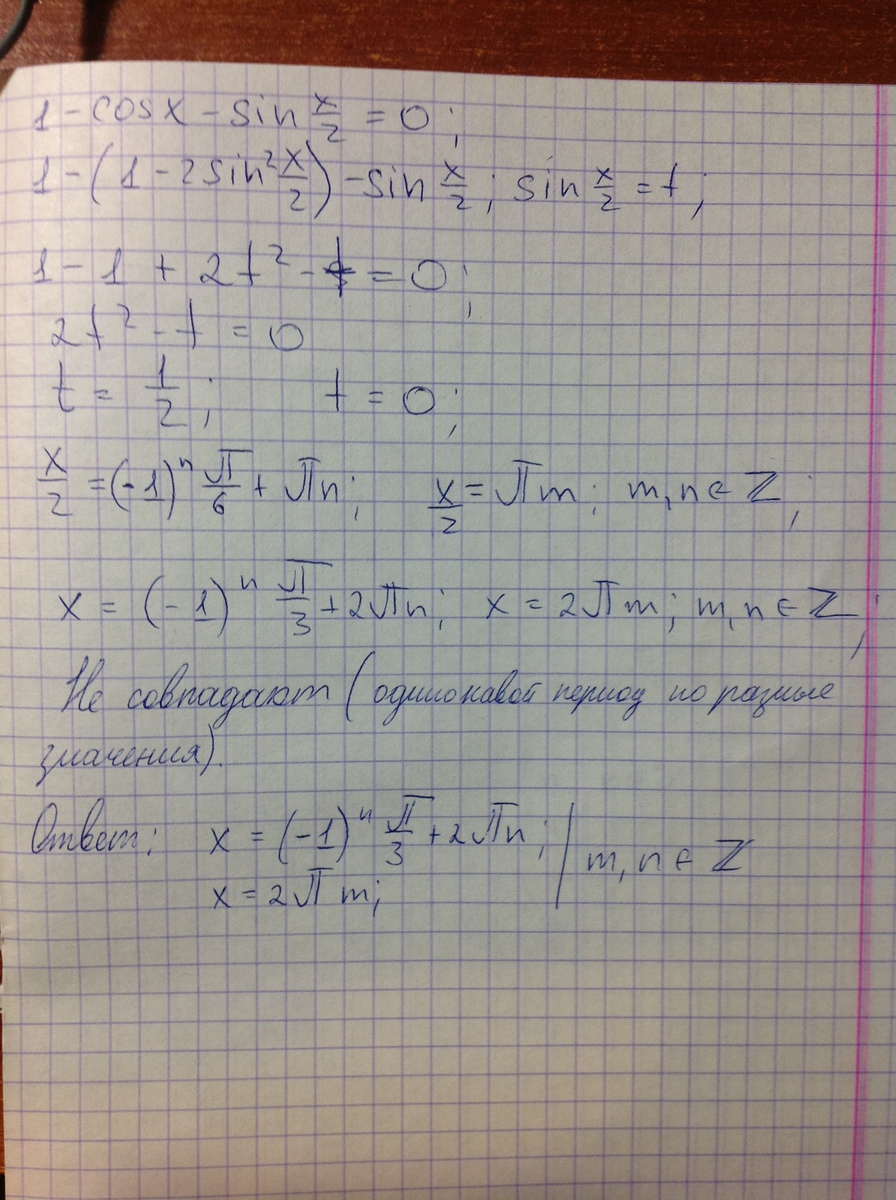 1 - cos x - sin x/2 = 0;
1 - (1 - 2 sin² x/2) - sin x/2; sin x/2 = t;
1 - 1 + 2t² - t = 0;
2t² - t = 0
t = 1/2; t = 0;
x/2 = (-1)ⁿ π/6 + πn; x/2 = πm; m,n ∈ ℤ;
x = (-1)ⁿ π/3 + 2πn; x = 2πm; m,n ∈ ℤ;
Не совпадают (одинокавой период но разные
значения).
Ответ: x = (-1)ⁿ π/3 + 2πn; | m,n ∈ ℤ
x = 2πm;